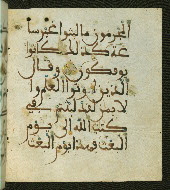 المجرمون ما لبثوا غير سا
عة كذلك كانوا
يوفكون وقال
الذين اوتوا العلم وا
لايمن لقد لبثتم في
كتب الله الى يوم
البعث فهذا يوم البعث